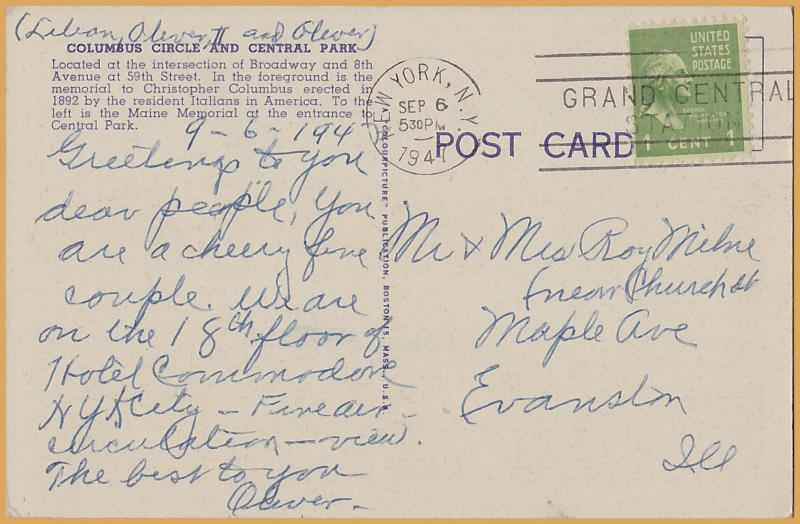 (Lilian, Oliver, II and Oliver)
COLUMBUS CIRCLE AND CENTRAL PARK
Located at the intersection of Broadway and 8th
Avenue at 59th Street. In the foreground is the
memorial to Christopher Columbus erected in
1892 by the resident Italians in America. To the
left is the Maine Memorial at the entrance to
Central Park.
9-6-1947
Greetings to you
dear people, You
are a cheery fine
couple. We are
on the 18th floor of
Hotel Commodore
NY City - Fine air-
circulation - view.
The best to you
Oliver-
"COLOURPICTURE" PUBLICATION, BOSTON 15, MASS., U.S.A.
NEW YORK, N.Y.
SEP 6
530PM
1947
GRAND CENTRAL
STATION
UNITED
STATES
POSTAGE
GEORGE
WASHINGTON
1 CENT 1
POST CARD
Mr & Mrs Roy Milne
(near Church St
Maple Ave
Evanston
Ill